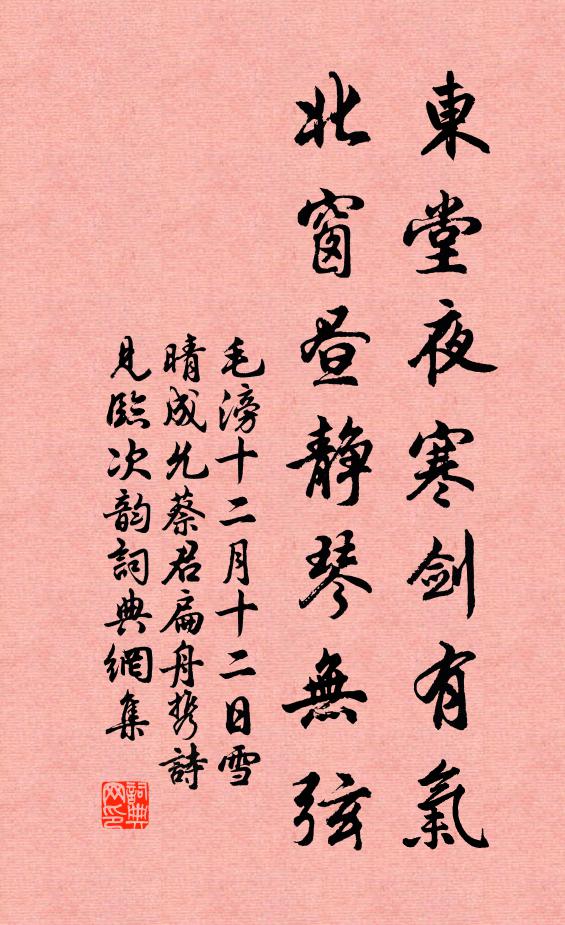 東堂夜寒剑有氣
北窗昼静琴無弦
毛滂十二月十二日雪
晴成允蔡君扁舟携詩
見臨次韵詞典網集
詞典
网印